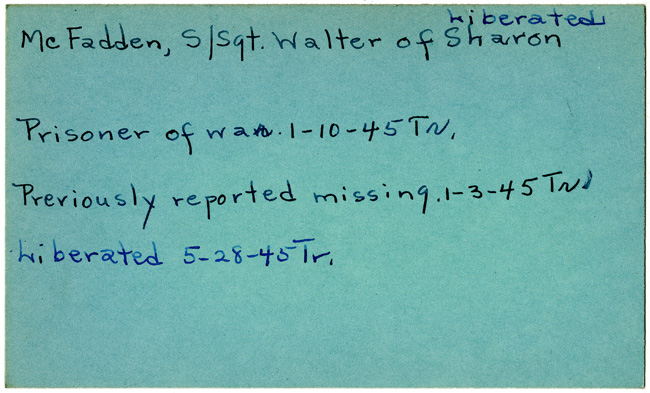 Liberated
McFadden, S/Sgt. Walter of Sharon
Prisoner of war. 1-10-45 Tr.
Previously reported missing. 1-3-45 Tr.
Liberated 5-28-45 Tr.